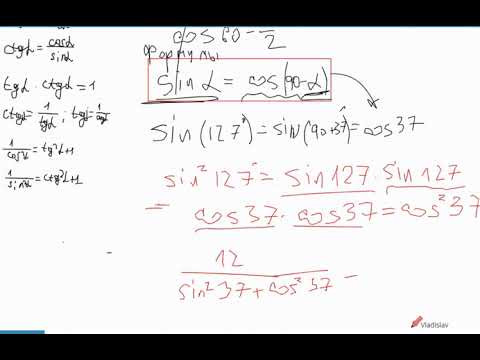 cos 60 = 1/2
формулы
ctgα = cosα/sinα
tgα · ctgα = 1
ctgα = 1/tgα ; tgα = 1/ctgα
1/cos²α = tg²α+1
1/sin²α = ctg²α+1
sin α = cos(90-α)
sin(127°) = sin(90+37°) = cos37
sin²127° = sin127 · sin127
= cos37 · cos37 = cos²37
12/(sin²37 + cos²37) =
Vladislav